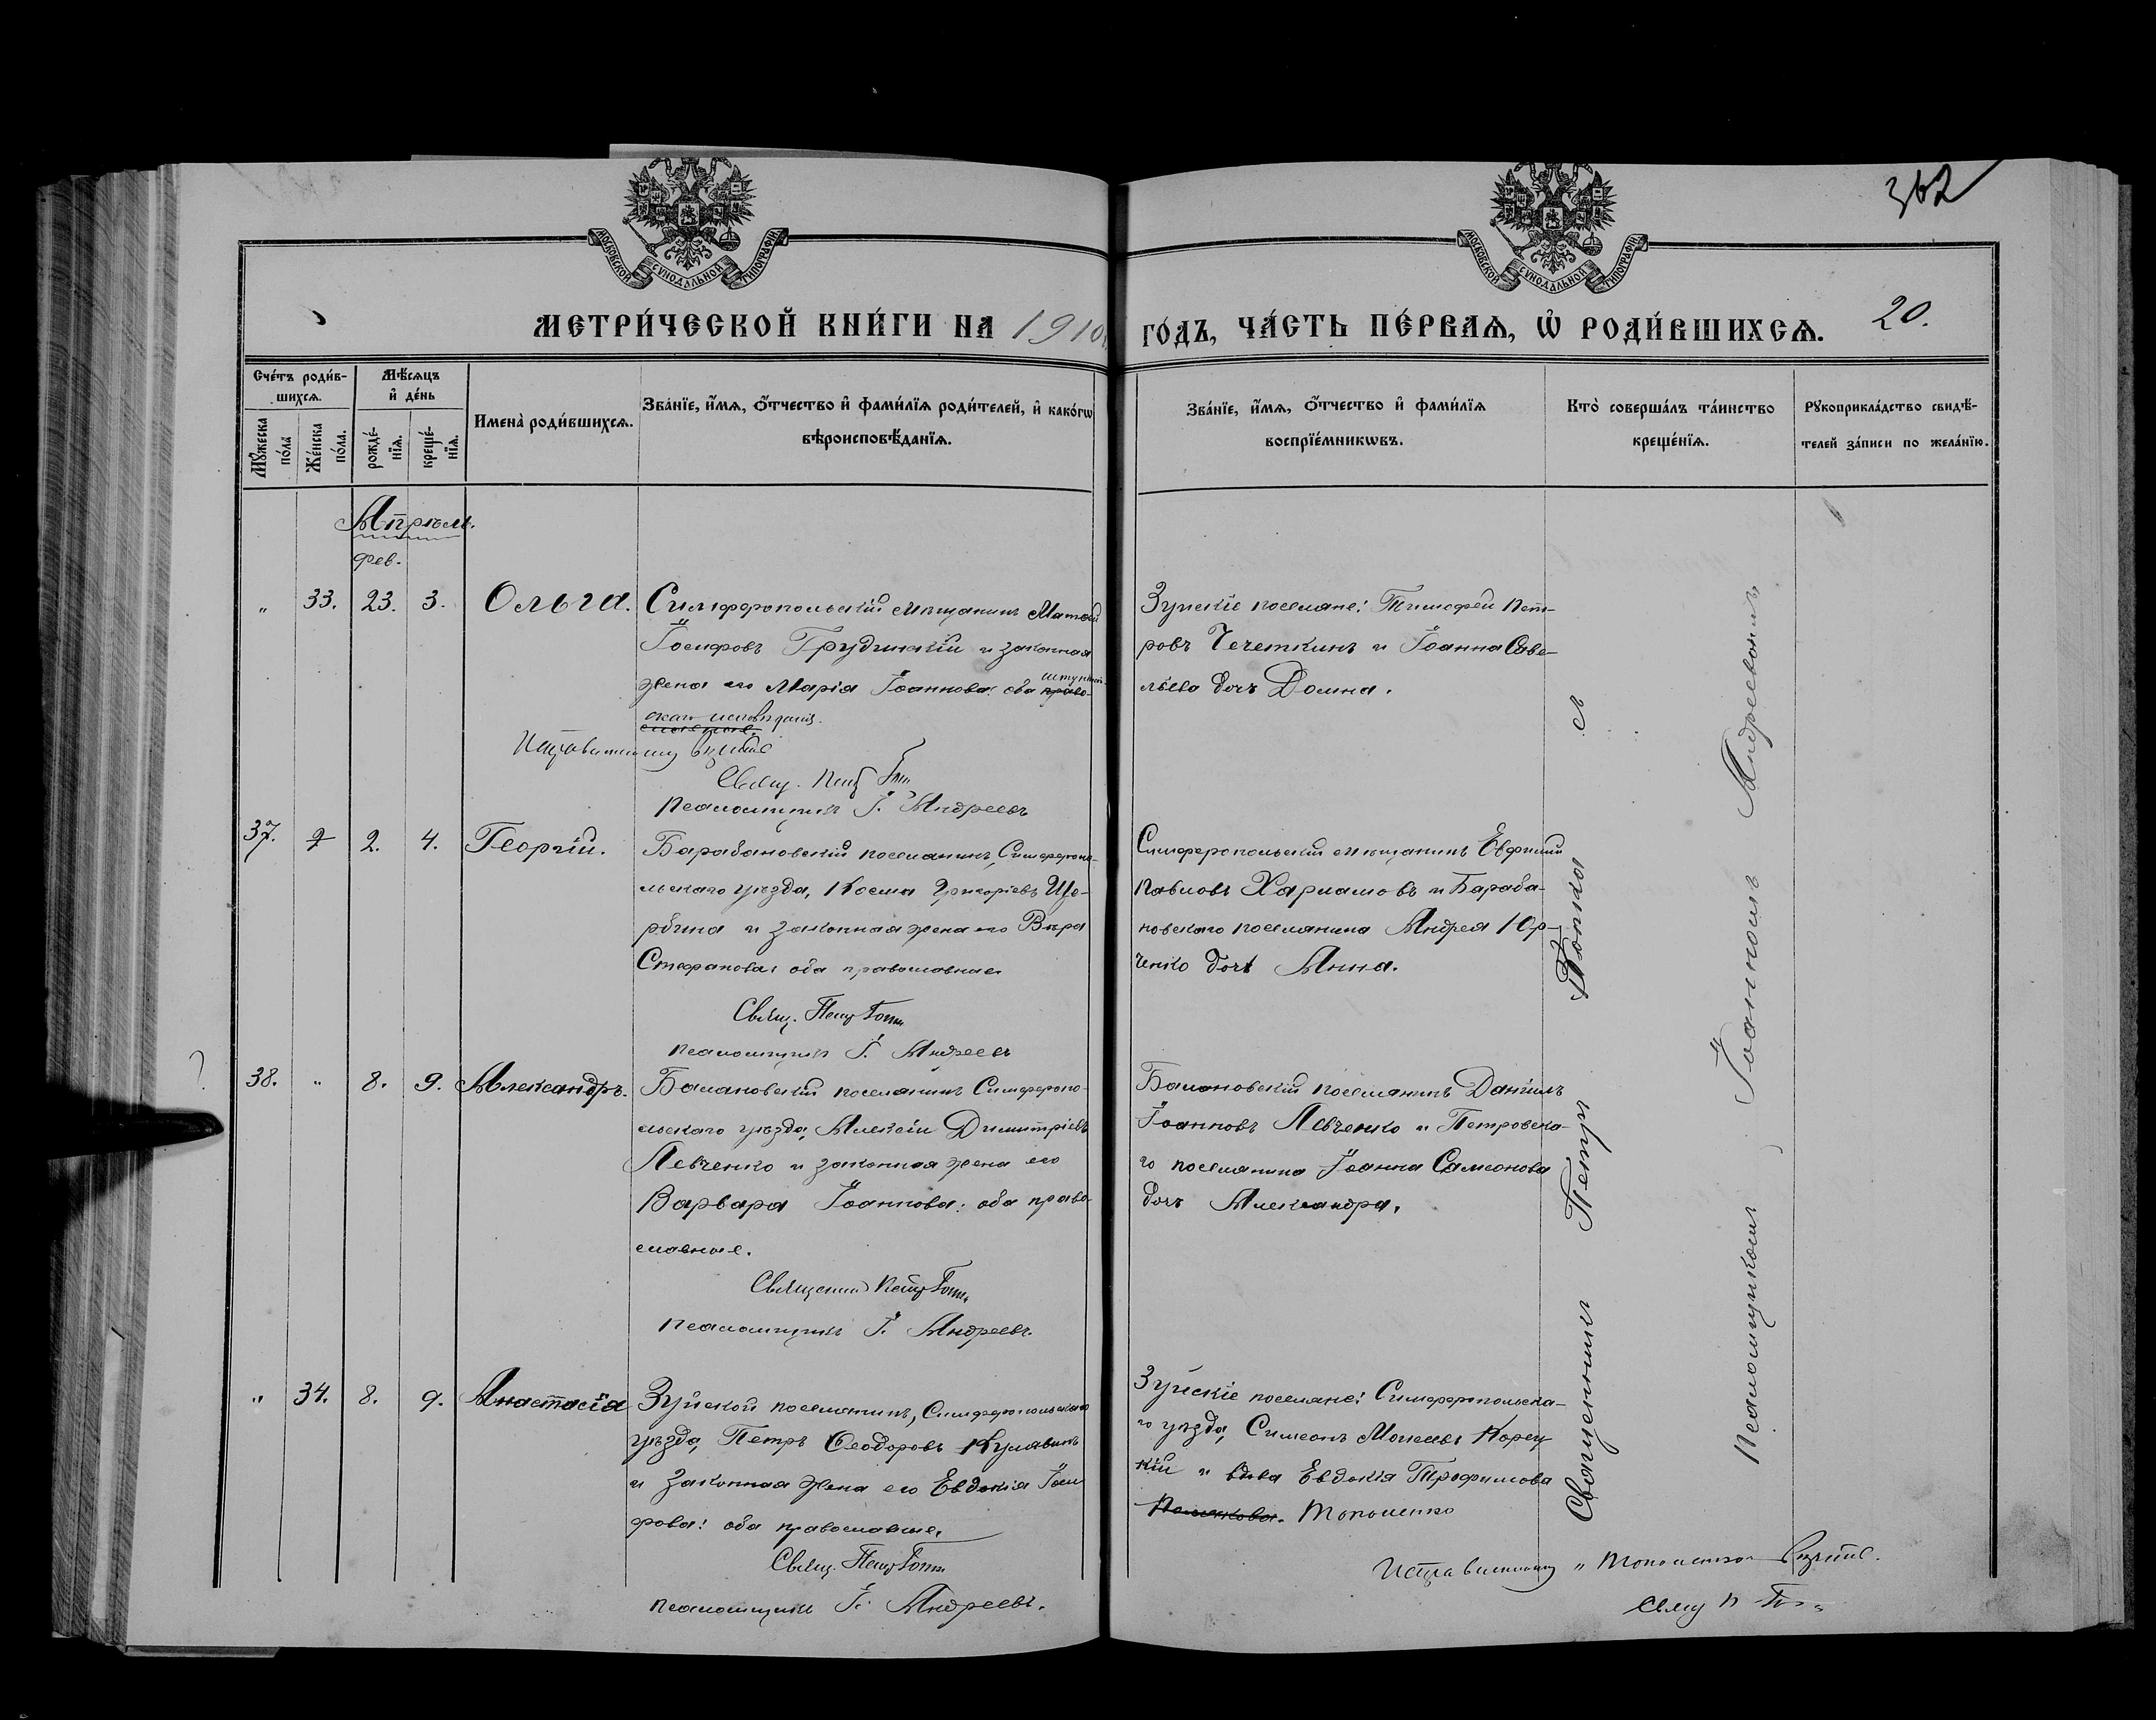 362
МОСКОВСКОЙ СУНОДАЛЬНОЙ ТИПОГРАФІИ
МОСКОВСКОЙ СУНОДАЛЬНОЙ ТИПОГРАФІИ
МЕТРИ́ЧЕСКОЙ КНИ́ГИ НА 1910
ГО́ДЪ, ЧА́СТЬ ПЕ́РВАѦ, Ѡ҆ РОДИ́ВШИХСѦ. 20.
Сче́тъ роди́в-
шихсѧ.
Мꙋ́жеска по́ла
Же́нска по́ла.
Мѣ́сѧцъ
и҆ де́нь
рожде́-
нїѧ.
креще́-
нїѧ.
Имена̀ роди́вшихсѧ.
Зва́нїе, и҆́мѧ, ѻ҆́тчество и҆ фами́лїѧ роди́телей, и҆ како́гѡ
вѣроисповѣ́данїѧ.
Зва́нїе, и҆́мѧ, ѻ҆́тчество и҆ фами́лїѧ
воспрїе́мникѡвъ.
Кто̀ соверша́лъ та́инство
креще́нїѧ.
Рꙋкоприкла́дство свидѣ́-
телей за́писи по жела́нїю.
Апрѣль.
Фев.
„ 33. 23. 3. Ольга. Симферопольскій мѣщанинъ Матѳей
Іосифовъ Грудинскій и законная
жена его Марія Іоаннова: оба право-
славные.
скаго исповѣданія.
Исправленному вѣрить
Свящ. Петр
Псаломщикъ І. Андреевъ
Зуйскіе поселяне: Тимофей Пет-
ровъ Чечеткинъ и Іоанна Саве-
льева дочь Домна.
37. 2. 4. Георгій. Барабановскій поселянинъ, Симферопо-
льскаго уѣзда, Косма Григоріевъ Ще-
рбина и законная жена его Вѣра
Стефанова: оба православные
Свящ. Петр
Псаломщикъ І. Андреевъ
Симферопольскій мѣщанинъ Евфимій
Павловъ Харламовъ и Бараба-
новскаго поселянина Андрея Юр-
ченко дочь Анна.
38. „ 8. 9. Александръ. Балановскій поселянинъ Симферопо-
льскаго уѣзда, Алексій Димитріевъ
Левченко и законная жена его
Варвара Іоаннова: оба право-
славные.
Священник Петр
Псаломщикъ І. Андреевъ.
Балановскій поселянинъ Даніилъ
Іоанновъ Левченко и Петровска-
го поселянина Іоанна Самсонова
дочь Александра.
„ 34. 8. 9. Анастасія Зуйской поселянинъ, Симферопольскаго
уѣзда, Петръ Ѳеодоровъ Кулявинъ
и законная жена его Евдокія Іоси
фова: оба православные.
Свящ. Петр
Псаломщикъ І. Андреевъ.
Зуйскіе поселяне: Симферопольска-
го уѣзда, Симеонъ Моисеевъ Корец
кій и вдова Евдокія Трофимова
Тополенко
Исправленному „Тополенко“ вѣрить.
Свящ П
Священникъ Петръ съ
Псаломщикомъ Іоанномъ Андреевымъ